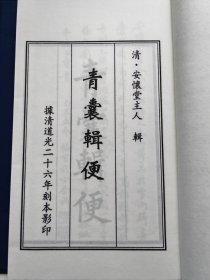 清·安懷堂主人 輯
青囊輯便
據清道光二十六年刻本影印